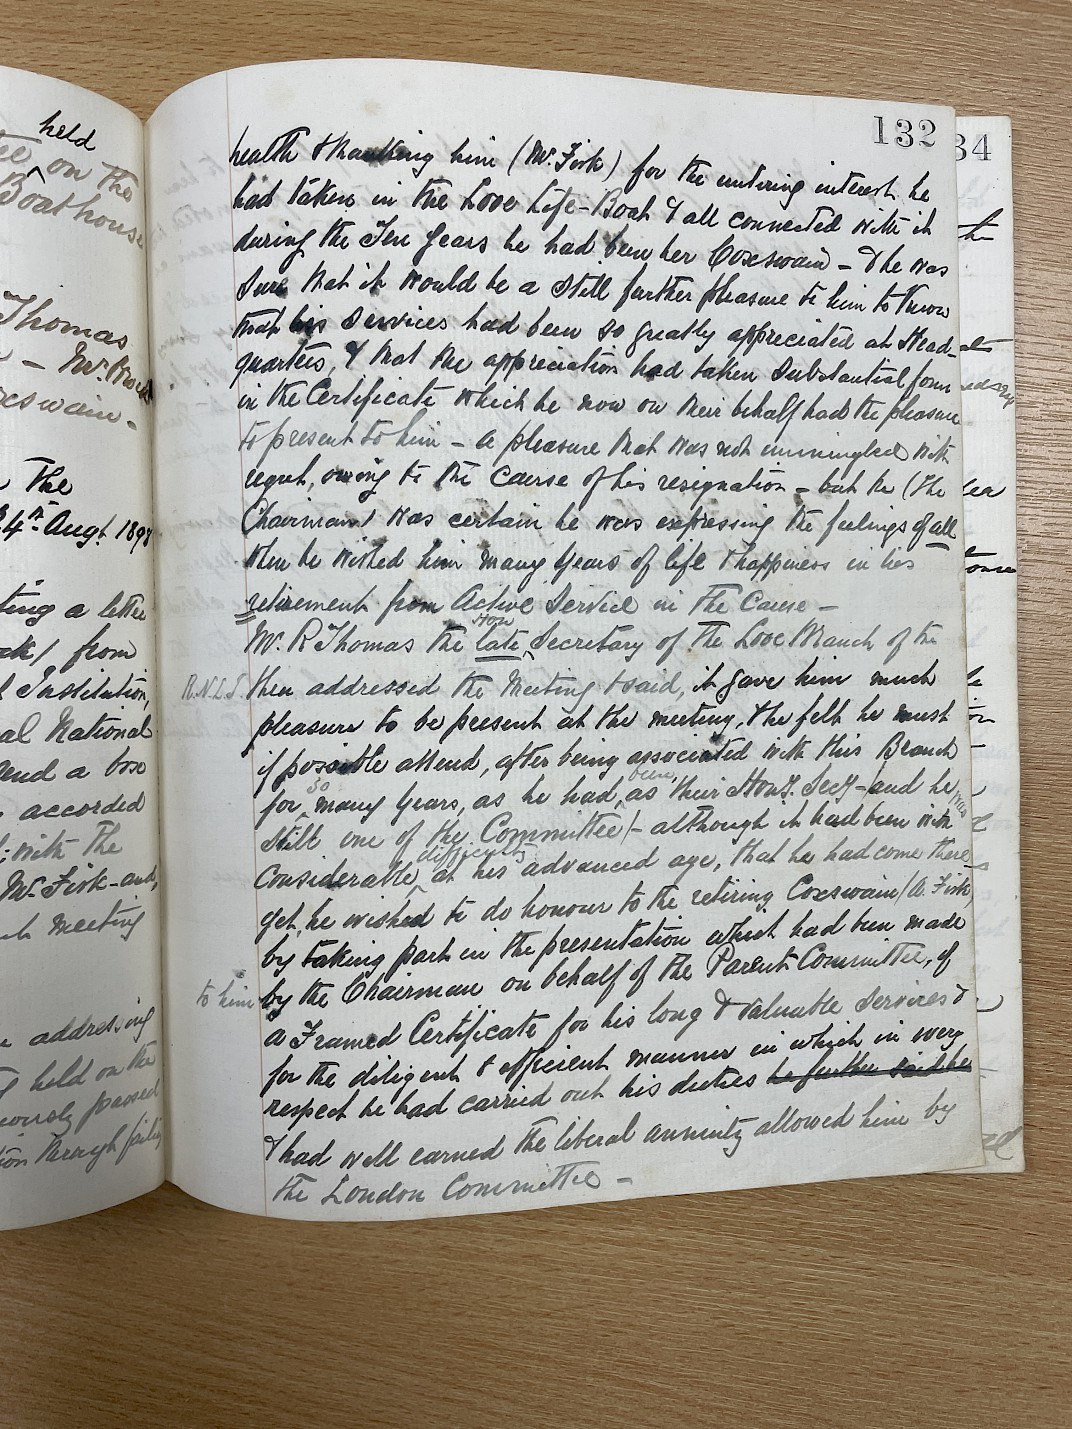 held
on the
Boathouse
Thomas
- Mr.
Coxswain -
The
4th Augt. 1898
a letter
from
Institution,
National
and a box
accorded
; with the
Mr. Fisk - and,
meeting
addressing
held on the
passed
through
132
34
health & thanking him (Mr. Fisk) for the untiring interest he
had taken in the Hove Life-Boat & all connected with it
during the Ten years he had been her Coxswain - & he was
sure that it would be a still further pleasure to him to know
that his services had been so greatly appreciated at Head-
quarters, & that the appreciation had taken substantial form
in the Certificate which he now on their behalf had the pleasure
to present to him - a pleasure that was not unmingled with
regret, owing to the cause of his resignation - but he (the
Chairman) was certain he was expressing the feelings of all
when he wished him many years of life & happiness in his
retirement from Active Service in the Cause -
Hon
Mr. R Thomas the late Secretary of the Branch of the
R.N.L.I. then addressed the Meeting & said, it gave him much
pleasure to be present at the meeting, & he felt he must
if possible attend, after being associated with this Branch
so been
for many years, as he had, as their Hony. Secy - (and he was
still one of the Committee) - although it had been with
difficulty
considerable at his advanced age, that he had come there -
yet, he wished to do honour to the retiring Coxswain (A. Fisk)
by taking part in the presentation which had been made
to him by the Chairman on behalf of the Parent Committee, of
a Framed Certificate for his long & valuable services &
for the diligent & efficient manner in which in every
respect he had carried out his duties he further said he
& had well earned the liberal annuity allowed him by
the London Committee -